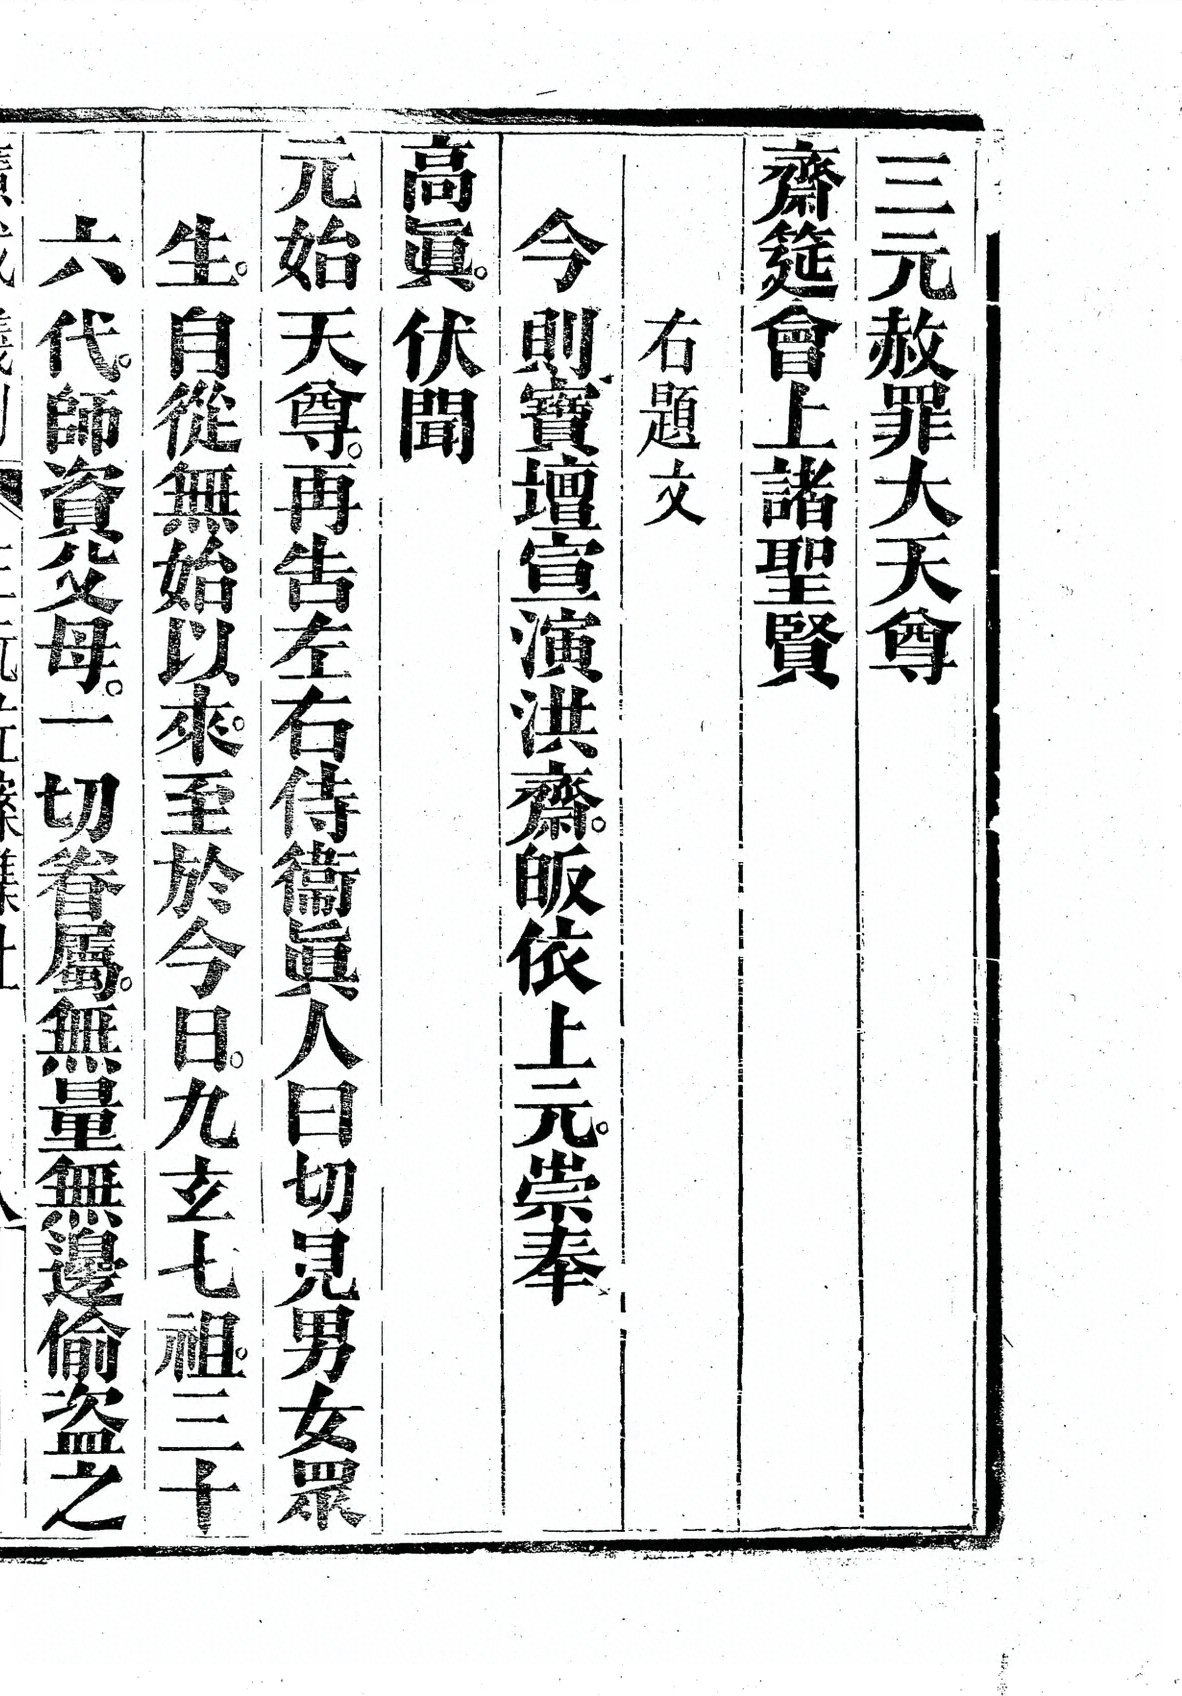 三元赦罪大天尊
齋筵會上諸聖賢
右題文
今則寶壇宣演洪齋。皈依上元。崇奉
高眞。伏聞
元始天尊。再告左右侍衞眞人曰切見男女眾
生。自從無始以來。至於今日。九玄七祖。三十
六代。師資父母。一切眷屬。無量無邊偷盜之